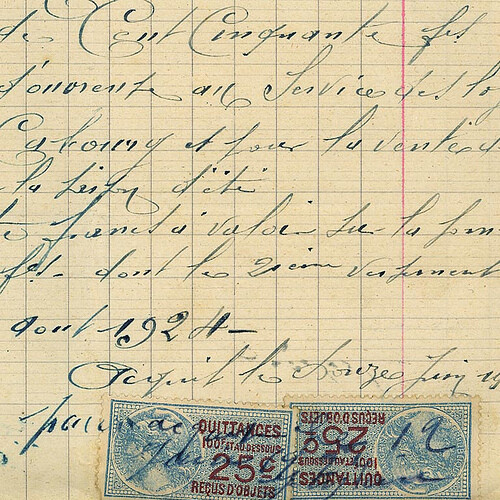 de Cent Cinquante frs
d'honorente au Service des lo
Cabourg et pour la vente d
la saison d'été
francs à valoir sur la som
frs - dont le 2ième versement
août 1924 -
Acquit le Douze Juin
QUITTANCES
100F ET AU DESSOUS
25c
REÇUS D'OBJETS
QUITTANCES
100F ET AU DESSOUS
25c
REÇUS D'OBJETS
12